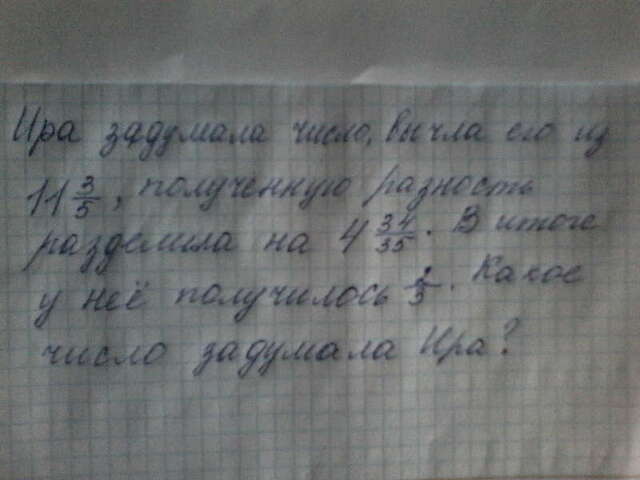 Ира задумала число, вычла его из
11 3/5, полученную разность
разделила на 4 34/35. В итоге
у неё получилось 2/3. Какое
число задумала Ира?